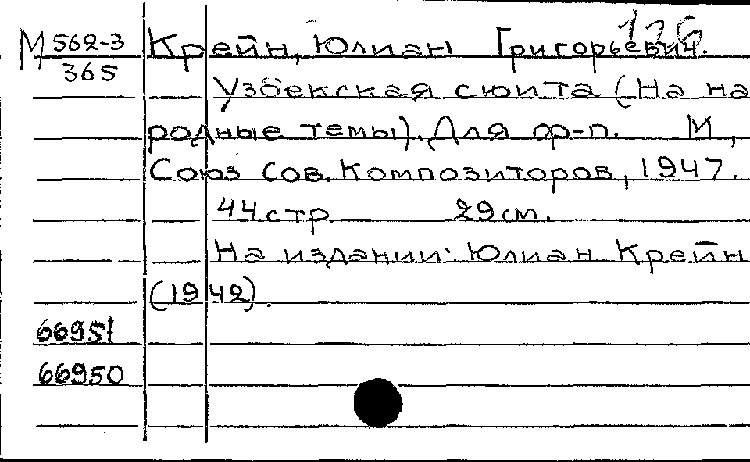 126
М 562-3/365 Крейн, Юлиан Григорьевич.
Узбекская сюита (На на
родные темы). Для ф-п. М.,
Союз Сов. Композиторов, 1947.
44 стр. 29 см.
На издании: Юлиан Крейн
(1942).
66951
66950